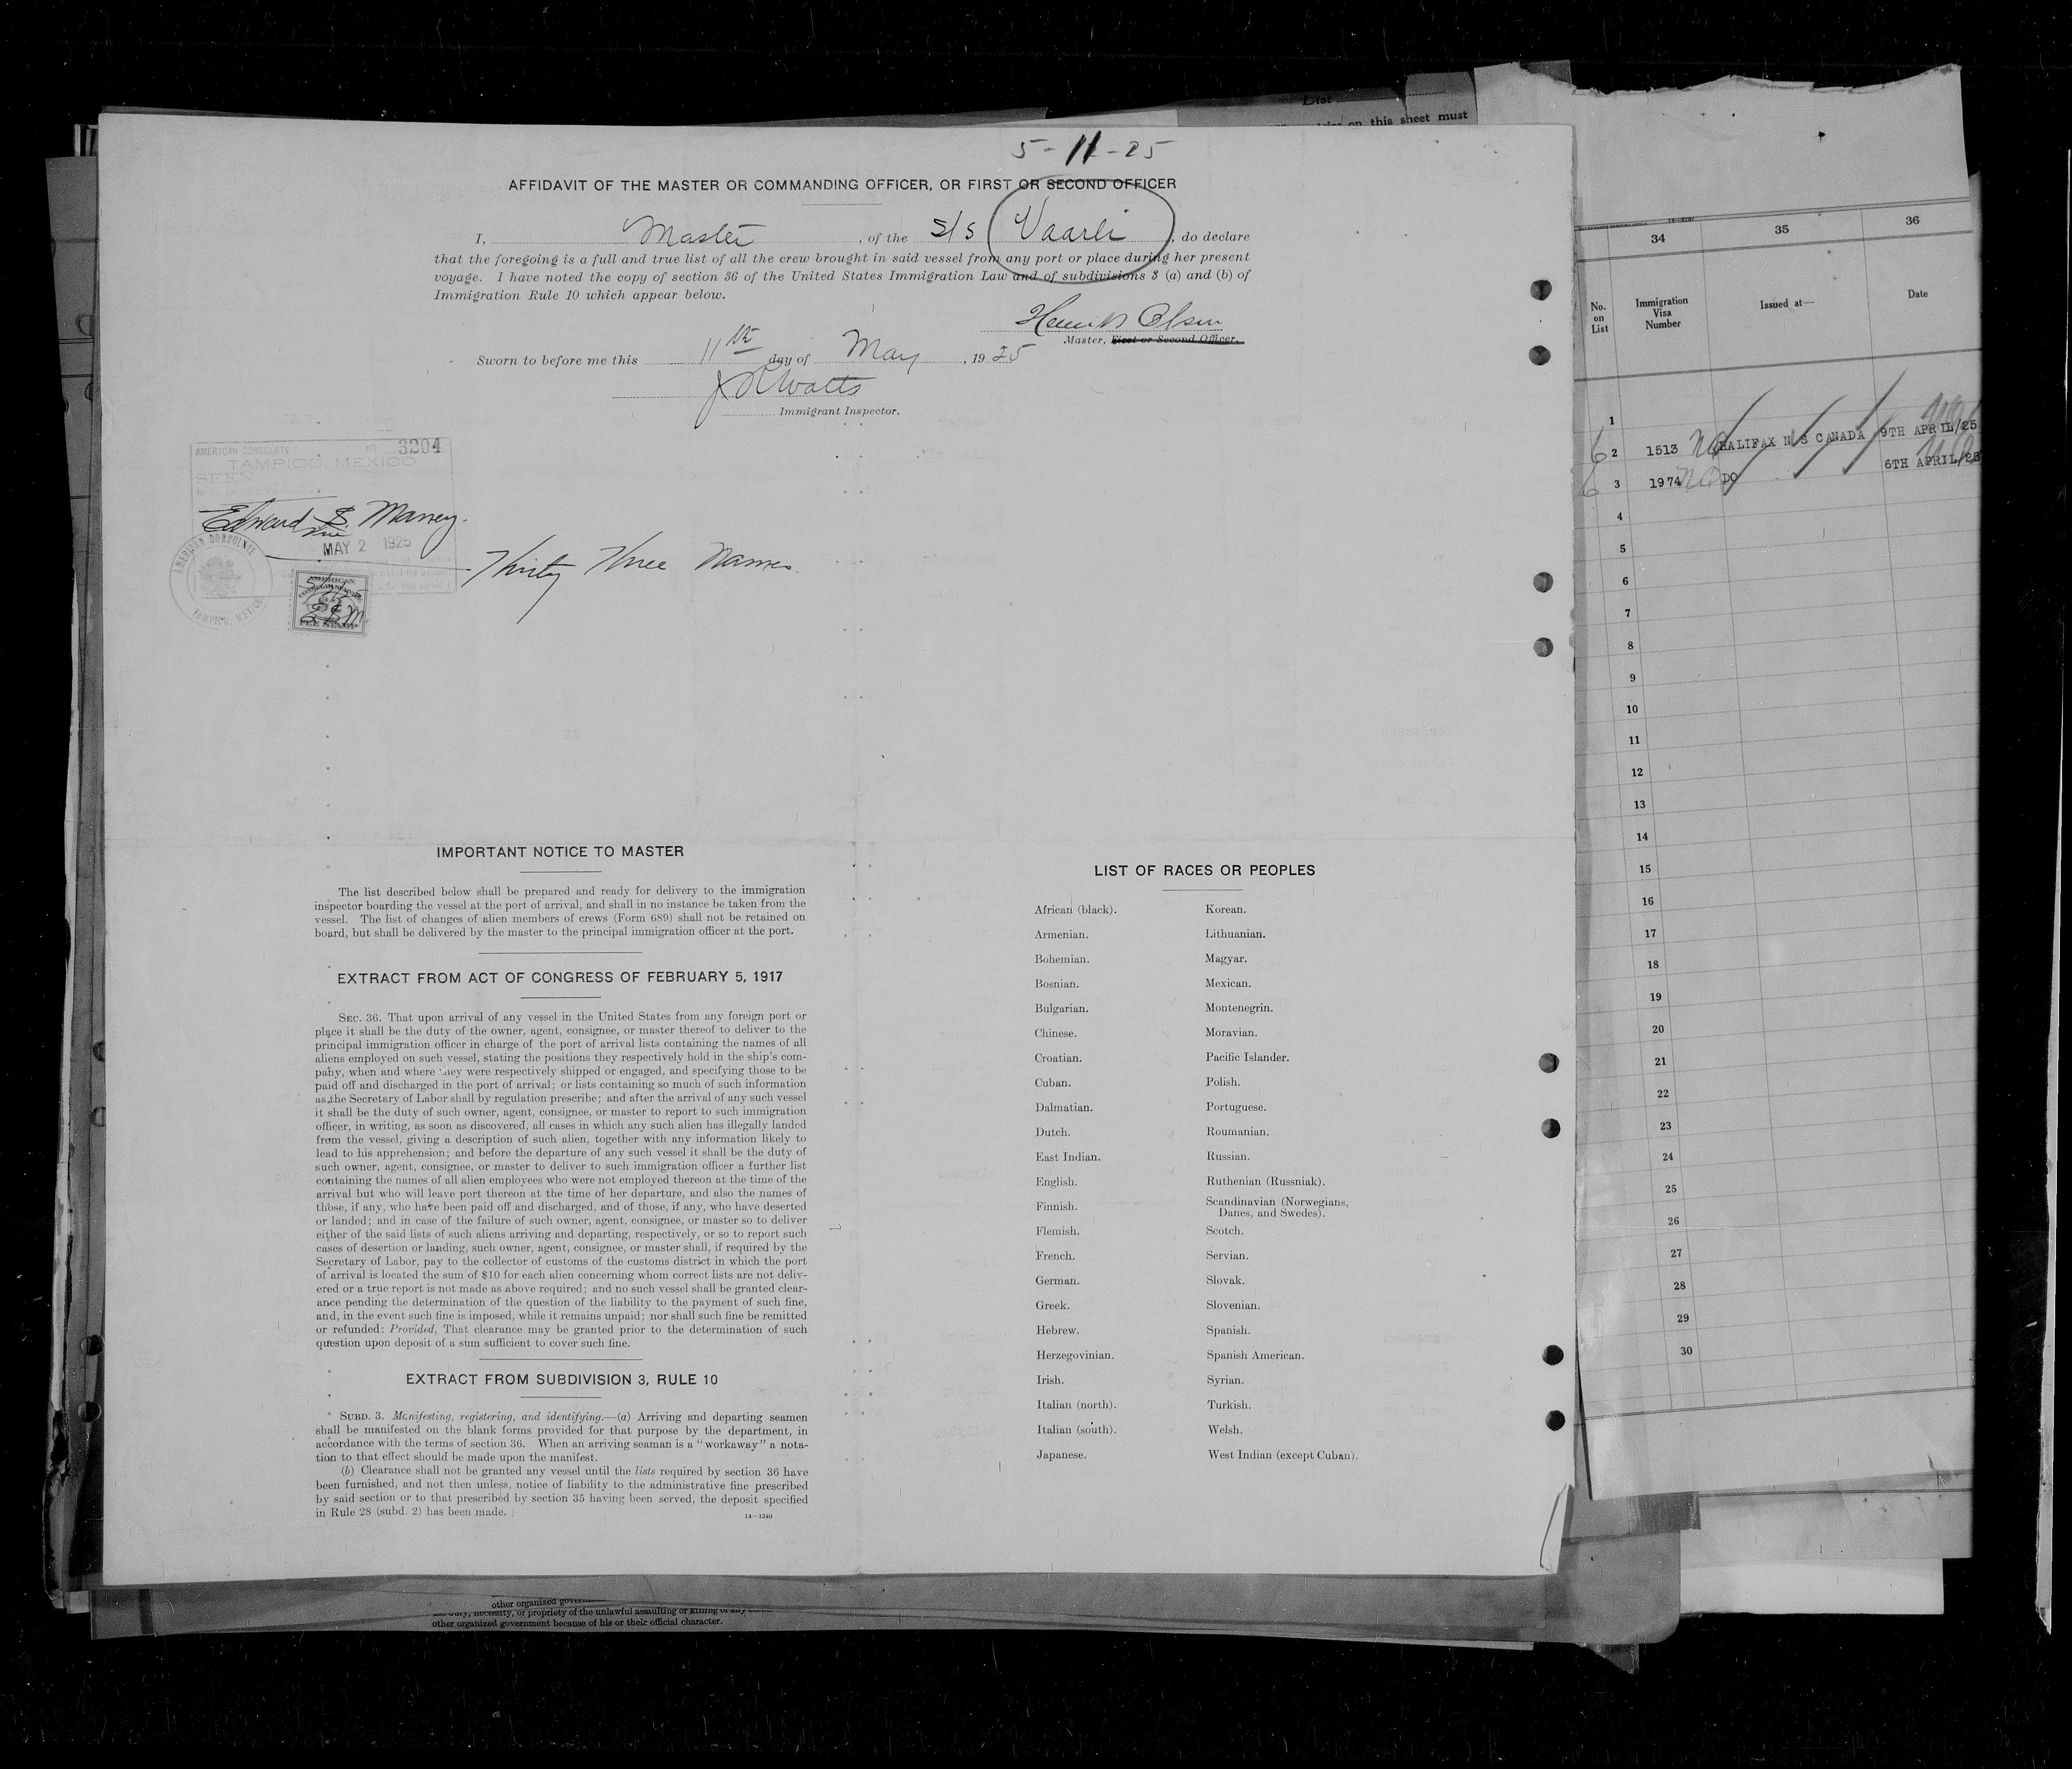 List
on this sheet must
5-11-25
AFFIDAVIT OF THE MASTER OR COMMANDING OFFICER, OR FIRST OR SECOND OFFICER
I, Master, of the S/S Vaarli, do declare
that the foregoing is a full and true list of all the crew brought in said vessel from any port or place during her present
voyage. I have noted the copy of section 36 of the United States Immigration Law and of subdivisions 3 (a) and (b) of
Immigration Rule 10 which appear below.
Henrik Olsen
Master, First or Second Officer.
Sworn to before me this 11th day of May, 1925
J R Watts
Immigrant Inspector.
AMERICAN CONSULATE NO. 3204
TAMPICO, MEXICO
SEEN
Edward S. Maney.
MAY 2 1925
Thirty Three Names.
AMERICAN CONSULATE
TAMPICO, MEXICO
AMERICAN
FEE STAMP
IMPORTANT NOTICE TO MASTER
The list described below shall be prepared and ready for delivery to the immigration
inspector boarding the vessel at the port of arrival, and shall in no instance be taken from the
vessel. The list of changes of alien members of crews (Form 689) shall not be retained on
board, but shall be delivered by the master to the principal immigration officer at the port.
EXTRACT FROM ACT OF CONGRESS OF FEBRUARY 5, 1917
SEC. 36. That upon arrival of any vessel in the United States from any foreign port or
place it shall be the duty of the owner, agent, consignee, or master thereof to deliver to the
principal immigration officer in charge of the port of arrival lists containing the names of all
aliens employed on such vessel, stating the positions they respectively hold in the ship's com-
pany, when and where they were respectively shipped or engaged, and specifying those to be
paid off and discharged in the port of arrival; or lists containing so much of such information
as the Secretary of Labor shall by regulation prescribe; and after the arrival of any such vessel
it shall be the duty of such owner, agent, consignee, or master to report to such immigration
officer, in writing, as soon as discovered, all cases in which any such alien has illegally landed
from the vessel, giving a description of such alien, together with any information likely to
lead to his apprehension; and before the departure of any such vessel it shall be the duty of
such owner, agent, consignee, or master to deliver to such immigration officer a further list
containing the names of all alien employees who were not employed thereon at the time of the
arrival but who will leave port thereon at the time of her departure, and also the names of
those, if any, who have been paid off and discharged, and of those, if any, who have deserted
or landed; and in case of the failure of such owner, agent, consignee, or master so to deliver
either of the said lists of such aliens arriving and departing, respectively, or so to report such
cases of desertion or landing, such owner, agent, consignee, or master shall, if required by the
Secretary of Labor, pay to the collector of customs of the customs district in which the port
of arrival is located the sum of $10 for each alien concerning whom correct lists are not deliv-
ered or a true report is not made as above required; and no such vessel shall be granted clear-
ance pending the determination of the question of the liability to the payment of such fine,
and, in the event such fine is imposed, while it remains unpaid; nor shall such fine be remitted
or refunded: Provided, That clearance may be granted prior to the determination of such
question upon deposit of a sum sufficient to cover such fine.
EXTRACT FROM SUBDIVISION 3, RULE 10
SUBD. 3. Manifesting, registering, and identifying.—(a) Arriving and departing seamen
shall be manifested on the blank forms provided for that purpose by the department, in
accordance with the terms of section 36. When an arriving seaman is a "workaway" a nota-
tion to that effect should be made upon the manifest.
(b) Clearance shall not be granted any vessel until the lists required by section 36 have
been furnished, and not then unless, notice of liability to the administrative fine prescribed
by said section or to that prescribed by section 35 having been served, the deposit specified
in Rule 28 (subd. 2) has been made.
14—1240
LIST OF RACES OR PEOPLES
African (black). Korean.
Armenian. Lithuanian.
Bohemian. Magyar.
Bosnian. Mexican.
Bulgarian. Montenegrin.
Chinese. Moravian.
Croatian. Pacific Islander.
Cuban. Polish.
Dalmatian. Portuguese.
Dutch. Roumanian.
East Indian. Russian.
English. Ruthenian (Russniak).
Finnish. Scandinavian (Norwegians,
Danes, and Swedes).
Flemish. Scotch.
French. Servian.
German. Slovak.
Greek. Slovenian.
Hebrew. Spanish.
Herzegovinian. Spanish American.
Irish. Syrian.
Italian (north). Turkish.
Italian (south). Welsh.
Japanese. West Indian (except Cuban).
34 35 36
No. on List Immigration Visa Number Issued at— Date
1
2 1513 HALIFAX N S CANADA 9TH APRIL/25
3 1974 DO 6TH APRIL/25
4
5
6
7
8
9
10
11
12
13
14
15
16
17
18
19
20
21
22
23
24
25
26
27
28
29
30
other organized
necessity, or propriety of the unlawful assaulting or killing of any
other organized government because of his or their official character.